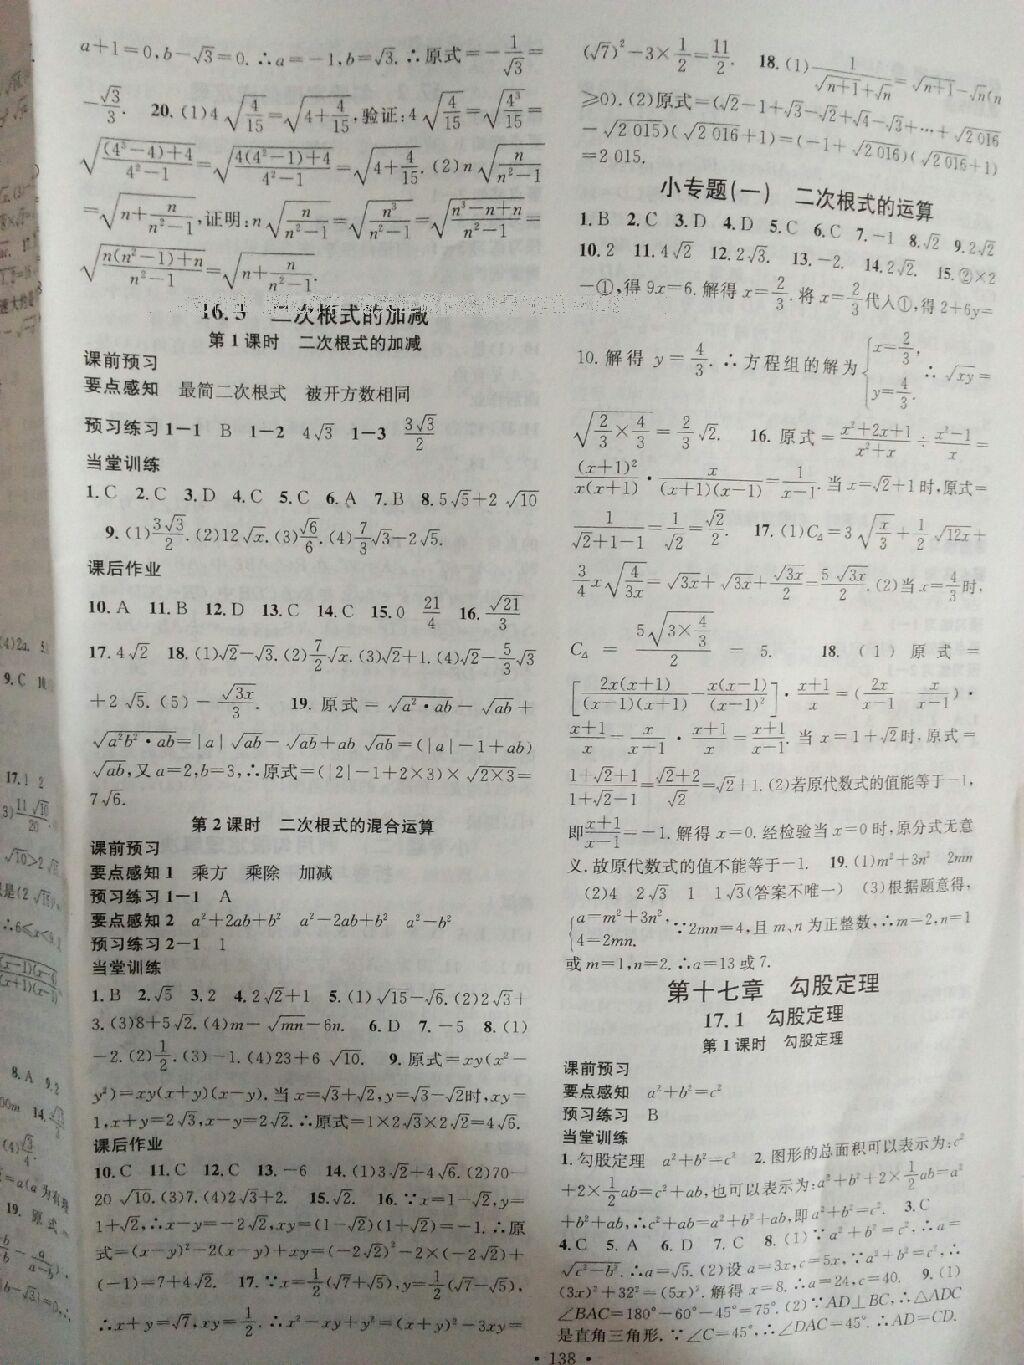 a+1=0,b-√3=0.∴a=-1,b=√3.∴原式=-1/√3=
-√3/3. 20.(1)4√(4/15)=√(4+4/15),验证:4√(4/15)=√(4³/15)=
√((4³-4)+4)/(4²-1)=√(4(4²-1)+4)/(4²-1)=√(4+4/15).(2)n√(n/(n²-1))
=√(n+n/(n²-1)),证明:n√(n/(n²-1))=√(n³/(n²-1))=√((n³-n+n)/(n²-1))=
√((n(n²-1)+n)/(n²-1))=√(n+n/(n²-1)).
16.3 二次根式的加减
第1课时 二次根式的加减
课前预习
要点感知 最简二次根式 被开方数相同
预习练习1-1 B 1-2 4√3 1-3 3√3/2
当堂训练
1.C 2.C 3.D 4.C 5.C 6.A 7.B 8.5√5+2√10
9.(1)3√3/2.(2)12√x.(3)√6/6.(4)7/3√3-2√5.
课后作业
10.A 11.B 12.D 13.C 14.C 15.0 21/4 16.√21/3
17.4√2 18.(1)√2-√3.(2)7/2√x.(3)√2+1.(4)√2-5/3√3
+2√5.(5)-√3x/3. 19.原式=√(a²·ab)-√ab+
√(a²b²·ab)=|a|√ab-√ab+ab√ab=(|a|-1+ab)
√ab,又a=2,b=3,∴原式=(|2|-1+2×3)×√(2×3)=
7√6.
第2课时 二次根式的混合运算
课前预习
要点感知1 乘方 乘除 加减
预习练习1-1 A
要点感知2 a²+2ab+b² a²-2ab+b² a²-b²
预习练习2-1 1
当堂训练
1.B 2.√5 3.2 4.2√2+1 5.(1)√15-√6.(2)2√3+
3.(3)8+5√2.(4)m-√mn-6n. 6.D 7.-5 8.(1)
-2.(2)1/2.(3)-1.(4)23+6√10. 9.原式=xy(x²-
y²)=xy(x+y)(x-y).当x=√3+√2,y=√3-√2时,xy=
1,x+y=2√3,x-y=2√2.∴原式=1×2√3×2√2=4√6.
课后作业
10.C 11.C 12.C 13.-6 14.(1)3√2+4√6.(2)70-
20√10.(3)7.(4)2√3+2. 15.√2. 16.∵x=1-√2,y=
1+√2,∴x-y=-2√2,xy=(1-√2)(1+√2)=-1.∴原
式=(x-y)²-2(x-y)+xy=(-2√2)²-2×(-2√2)+
(-1)=7+4√2. 17.∵x=1/2(√7+√5),y=1/2(√7-√5),
∴x+y=√7,xy=1/2.∴x²-xy+y²=(x+y)²-3xy=
(√7)²-3×1/2=11/2. 18.(1)1/(√(n+1)+√n)=√(n+1)-√n(n
≥0).(2)原式=(√2-1+√3-√2+√4-√3+…+√2 016
-√2 015)(√2 016+1)=(-1+√2 016)(√2 016+1)
=2 015.
小专题(一) 二次根式的运算
1.B 2.C 3.D 4.D 5.C 6.C 7.-1 8.√2 9.2√2
10.2 11.4√2 12.2√3. 13.-2. 14.2√2. 15.②×2
-①,得9x=6.解得x=2/3.将x=2/3代入①,得2+6y=
10.解得y=4/3.∴方程组的解为{x=2/3, y=4/3. ∴√xy=
√(2/3×4/3)=2/3√2. 16.原式=(x²+2x+1)/(x²+x)÷(x²-1)/x=
(x+1)²/(x(x+1))·x/((x+1)(x-1))=1/(x-1).当x=√2+1时,原式=
1/(√2+1-1)=1/√2=√2/2. 17.(1)C△=3√(x/3)+1/2√12x+
3/4x√(4/3x)=√3x+√3x+√3x/2=5√3x/2.(2)当x=4/3时,
C△=5√(3×4/3)/2=5. 18.(1)原式=
[2x(x+1)/((x-1)(x+1))-x(x-1)/(x-1)²]·(x+1)/x=(2x/(x-1)-x/(x-1))·
(x+1)/x=x/(x-1)·(x+1)/x=(x+1)/(x-1).当x=1+√2时,原式=
(1+√2+1)/(1+√2-1)=(√2+2)/√2=√2+1.(2)若原代数式的值能等于-1,
即(x+1)/(x-1)=-1.解得x=0.经检验当x=0时,原分式无意
义.故原代数式的值不能等于-1. 19.(1)m²+3n² 2mn
(2)4 2√3 1 1√3(答案不唯一) (3)根据题意得,
{a=m²+3n², 4=2mn. ∵2mn=4,且m、n为正整数,∴m=2,n=1
或m=1,n=2.∴a=13或7.
第十七章 勾股定理
17.1 勾股定理
第1课时 勾股定理
课前预习
要点感知 a²+b²=c²
预习练习 B
当堂训练
1.勾股定理 a²+b²=c² 2.图形的总面积可以表示为:c²
+2×1/2ab=c²+ab,也可以表示为:a²+b²+2×1/2ab=a²
+b²+ab,∴c²+ab=a²+b²+ab,即a²+b²=c². 3.C
4.C 5.A 6.D 7.C 8.(1)∵a²+b²=c².∴a=
√(c²-b²).∴a=√5.(2)设a=3x,c=5x,∵a²+b²=c²,∴
(3x)²+32²=(5x)².解得x=8.∴a=24,c=40. 9.(1)
∠BAC=180°-60°-45°=75°.(2)∵AD⊥BC,∴△ADC
是直角三角形.∵∠C=45°,∴∠DAC=45°.∴AD=CD.
·138·